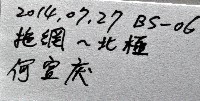 2014.07.27 BS-06
拖網～北極
何宣慶